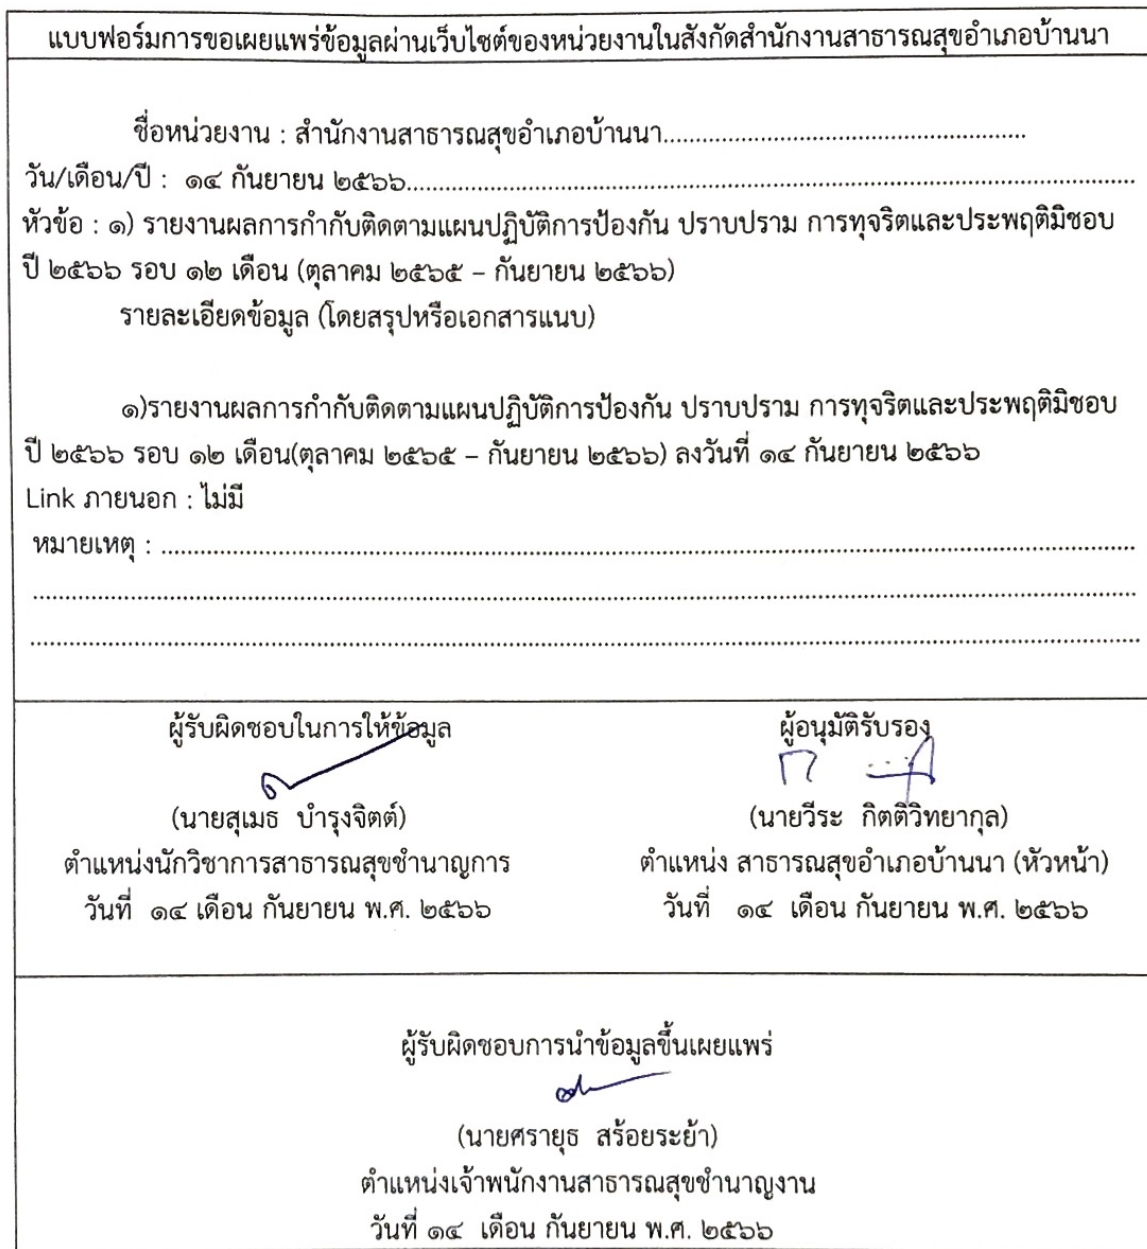 แบบฟอร์มการขอเผยแพร่ข้อมูลผ่านเว็บไซต์ของหน่วยงานในสังกัดสำนักงานสาธารณสุขอำเภอบ้านนา
ชื่อหน่วยงาน : สำนักงานสาธารณสุขอำเภอบ้านนา.......................................................
วัน/เดือน/ปี : ๑๔ กันยายน ๒๕๖๖...............................................................................................................
หัวข้อ : ๑) รายงานผลการกำกับติดตามแผนปฏิบัติการป้องกัน ปราบปราม การทุจริตและประพฤติมิชอบ
ปี ๒๕๖๖ รอบ ๑๒ เดือน (ตุลาคม ๒๕๖๕ – กันยายน ๒๕๖๖)
รายละเอียดข้อมูล (โดยสรุปหรือเอกสารแนบ)
๑)รายงานผลการกำกับติดตามแผนปฏิบัติการป้องกัน ปราบปราม การทุจริตและประพฤติมิชอบ
ปี ๒๕๖๖ รอบ ๑๒ เดือน(ตุลาคม ๒๕๖๕ – กันยายน ๒๕๖๖) ลงวันที่ ๑๔ กันยายน ๒๕๖๖
Link ภายนอก : ไม่มี
หมายเหตุ : ....................................................................................................................................................
........................................................................................................................................................................
........................................................................................................................................................................
ผู้รับผิดชอบในการให้ข้อมูล ผู้อนุมัติรับรอง
(นายสุเมธ บำรุงจิตต์) (นายวีระ กิตติวิทยากุล)
ตำแหน่งนักวิชาการสาธารณสุขชำนาญการ ตำแหน่ง สาธารณสุขอำเภอบ้านนา (หัวหน้า)
วันที่ ๑๔ เดือน กันยายน พ.ศ. ๒๕๖๖ วันที่ ๑๔ เดือน กันยายน พ.ศ. ๒๕๖๖
ผู้รับผิดชอบการนำข้อมูลขึ้นเผยแพร่
(นายศรายุธ สร้อยระย้า)
ตำแหน่งเจ้าพนักงานสาธารณสุขชำนาญงาน
วันที่ ๑๔ เดือน กันยายน พ.ศ. ๒๕๖๖